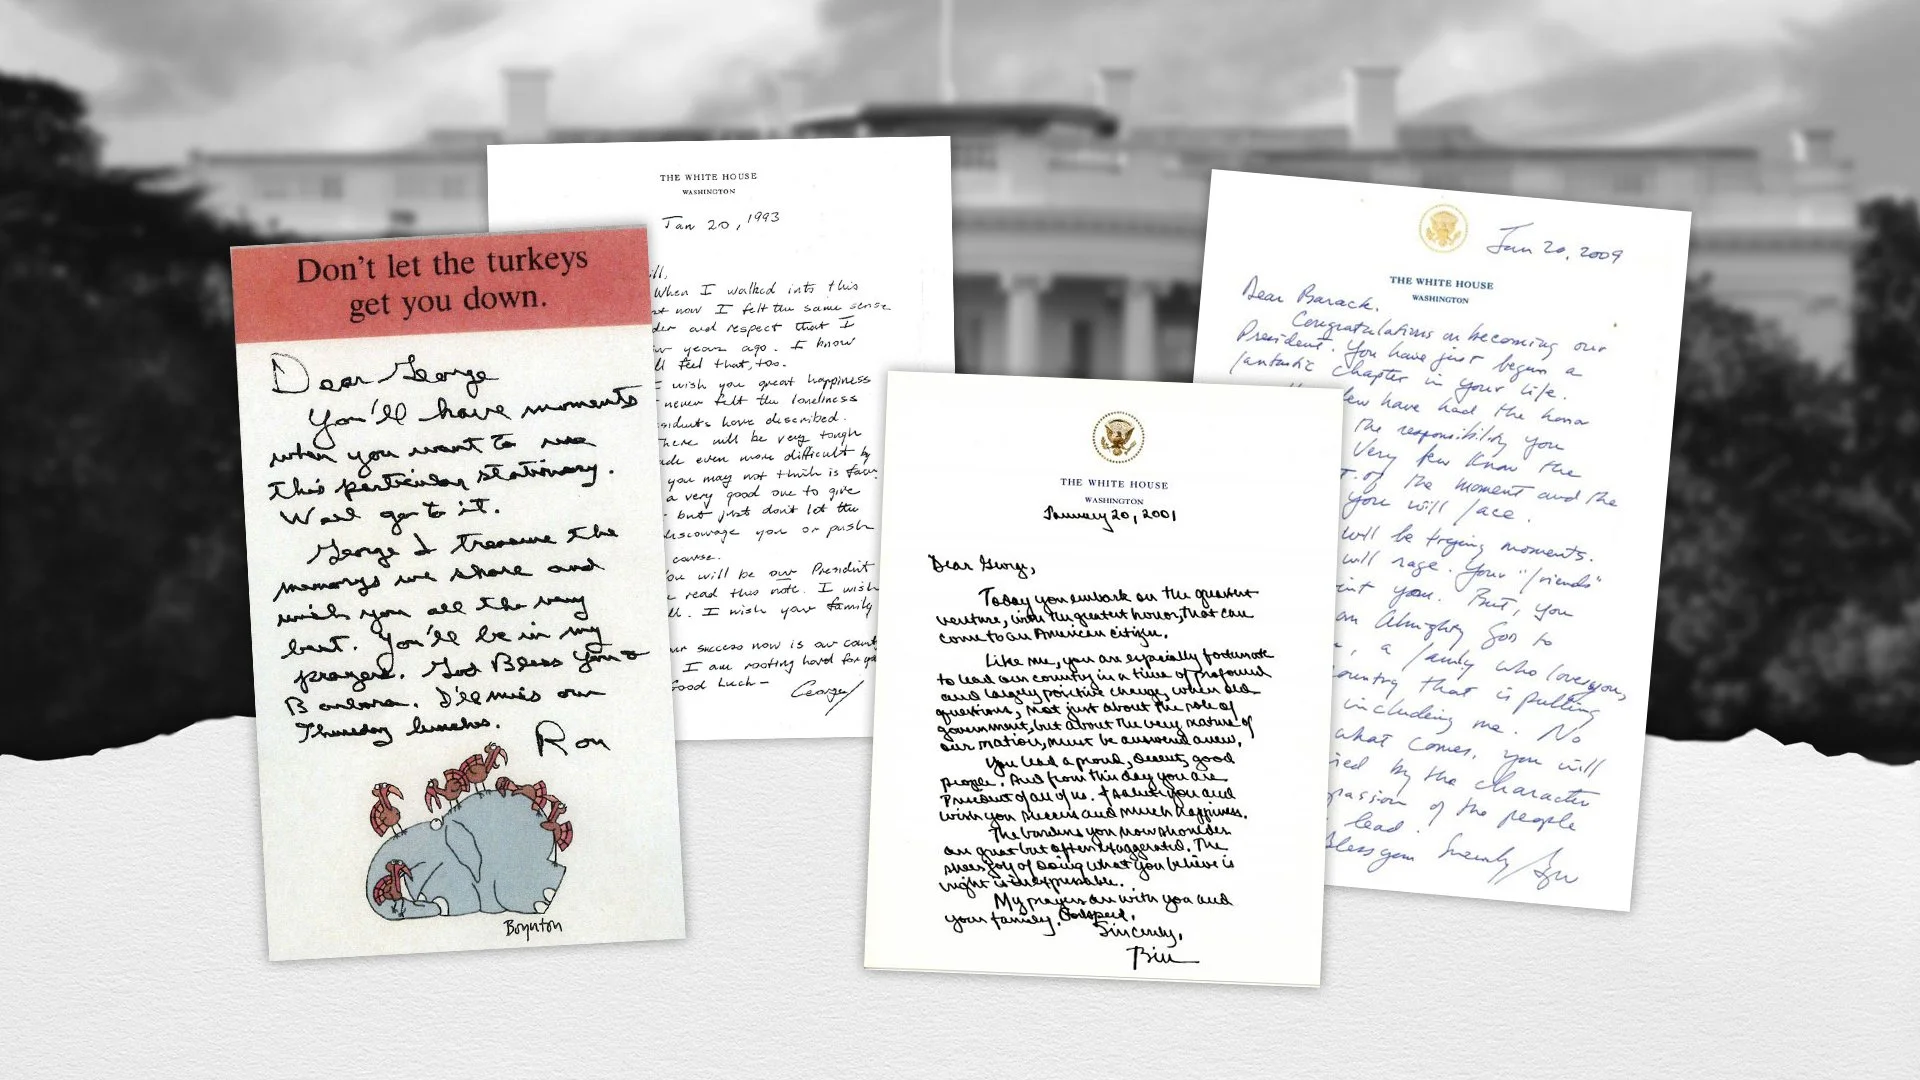 Don't let the turkeys
get you down.
Dear George
You'll have moments
when you want to use
this particular stationary.
Well go to it.
George I treasure the
memorys we share and
wish you all the very
best. You'll be in my
prayers. God Bless You &
Barbara. I'll miss our
Thursday lunches.
Ron
Boynton
THE WHITE HOUSE
WASHINGTON
Jan 20, 1993
ill,
When I walked into this
now I felt the same sense
der and respect that I
years ago. I know
ll feel that, too.
I wish you great happiness
never felt the loneliness
sidents have described.
There will be very tough
de even more difficult by
you may not think is fair.
a very good one to give
but just don't let the
discourage you or push
course.
You will be our President
read this note. I wish
ll. I wish your family
ur success now is our count
I am rooting hard for yo
Good Luck —
George
THE WHITE HOUSE
WASHINGTON
January 20, 2001
Dear George,
Today you embark on the greatest
venture, with the greatest honor, that can
come to an American citizen.
Like me, you are especially fortunate
to lead our country in a time of profound
and largely positive change, when old
questions, not just about the role of
government, but about the very nature of
our nation, must be answered anew.
You lead a proud, decent, good
people. And from this day you are
President of all of us. I salute you and
wish you success and much happiness.
The burdens you now shoulder
are great but often exaggerated. The
sheer joy of doing what you believe is
right is inexpressible.
My prayers are with you and
your family. Godspeed.
Sincerely,
Bill
Jan 20, 2009
THE WHITE HOUSE
WASHINGTON
Dear Barack,
Congratulations on becoming our
President. You have just begun a
fantastic chapter in your life.
few have had the honor
the responsibility you
Very few know the
t of the moment and the
you will face.
will be trying moments.
will rage. Your "friends"
int you. But, you
an Almighty God to
, a family who loves you,
ountry that is pulling
including me. No
what comes, you will
ired by the character
passion of the people
lead.
bless you. Sincerely,